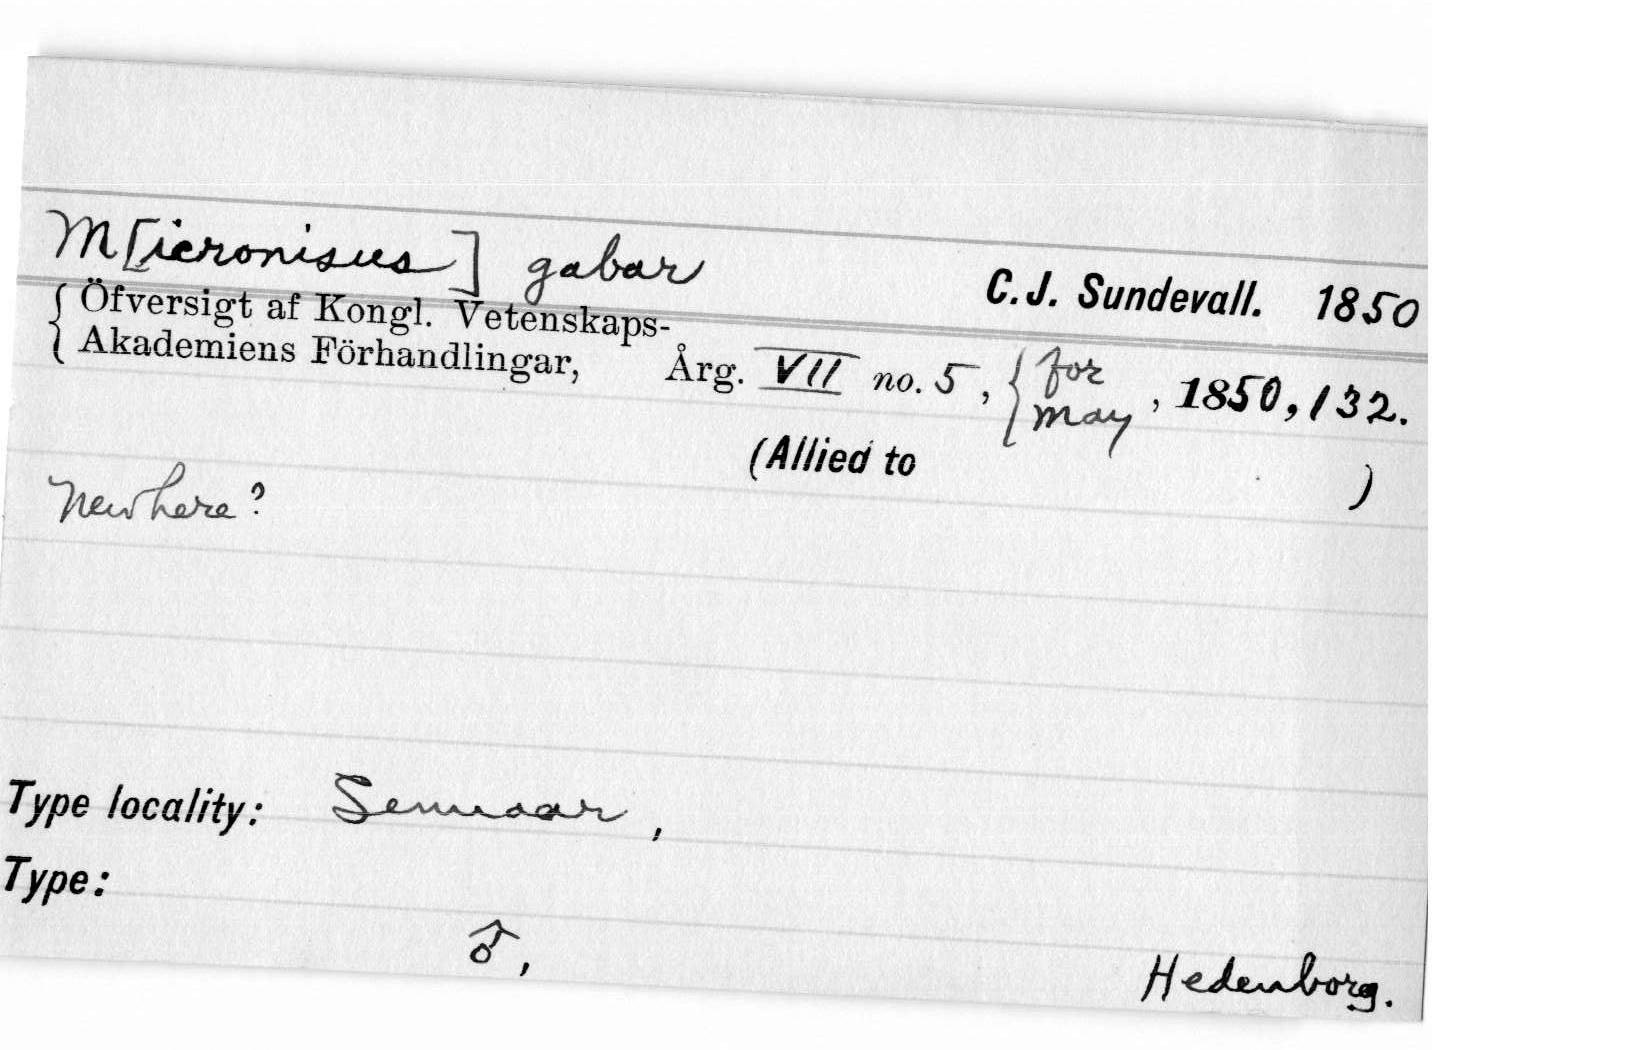 M[icronisus] gabar C.J. Sundevall. 1850
{ Öfversigt af Kongl. Vetenskaps-
Akademiens Förhandlingar, Årg. VII no. 5, { for May, 1850, 132.
(Allied to )
New here?
Type locality: Sennaar,
Type:
♂,
Hedenborg.